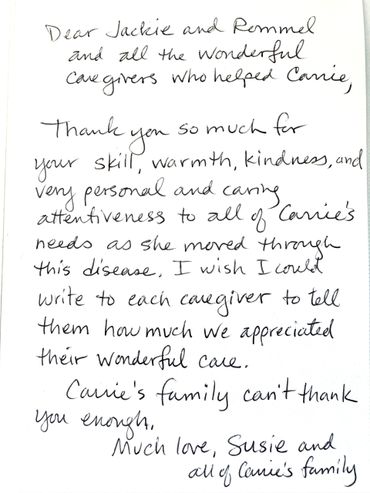 Dear Jackie and Rommel
and all the wonderful
caregivers who helped Carrie,
Thank you so much for
your skill, warmth, kindness, and
very personal and caring
attentiveness to all of Carrie's
needs as she moved through
this disease. I wish I could
write to each caregiver to tell
them how much we appreciated
their wonderful care.
Carrie's family can't thank
you enough.
Much love, Susie and
all of Carrie's family